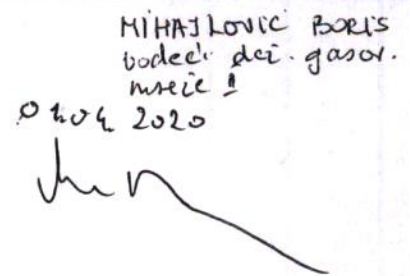 MIHAJLOVIC BORIS
vodeći dci. gasov.
mreže
2020